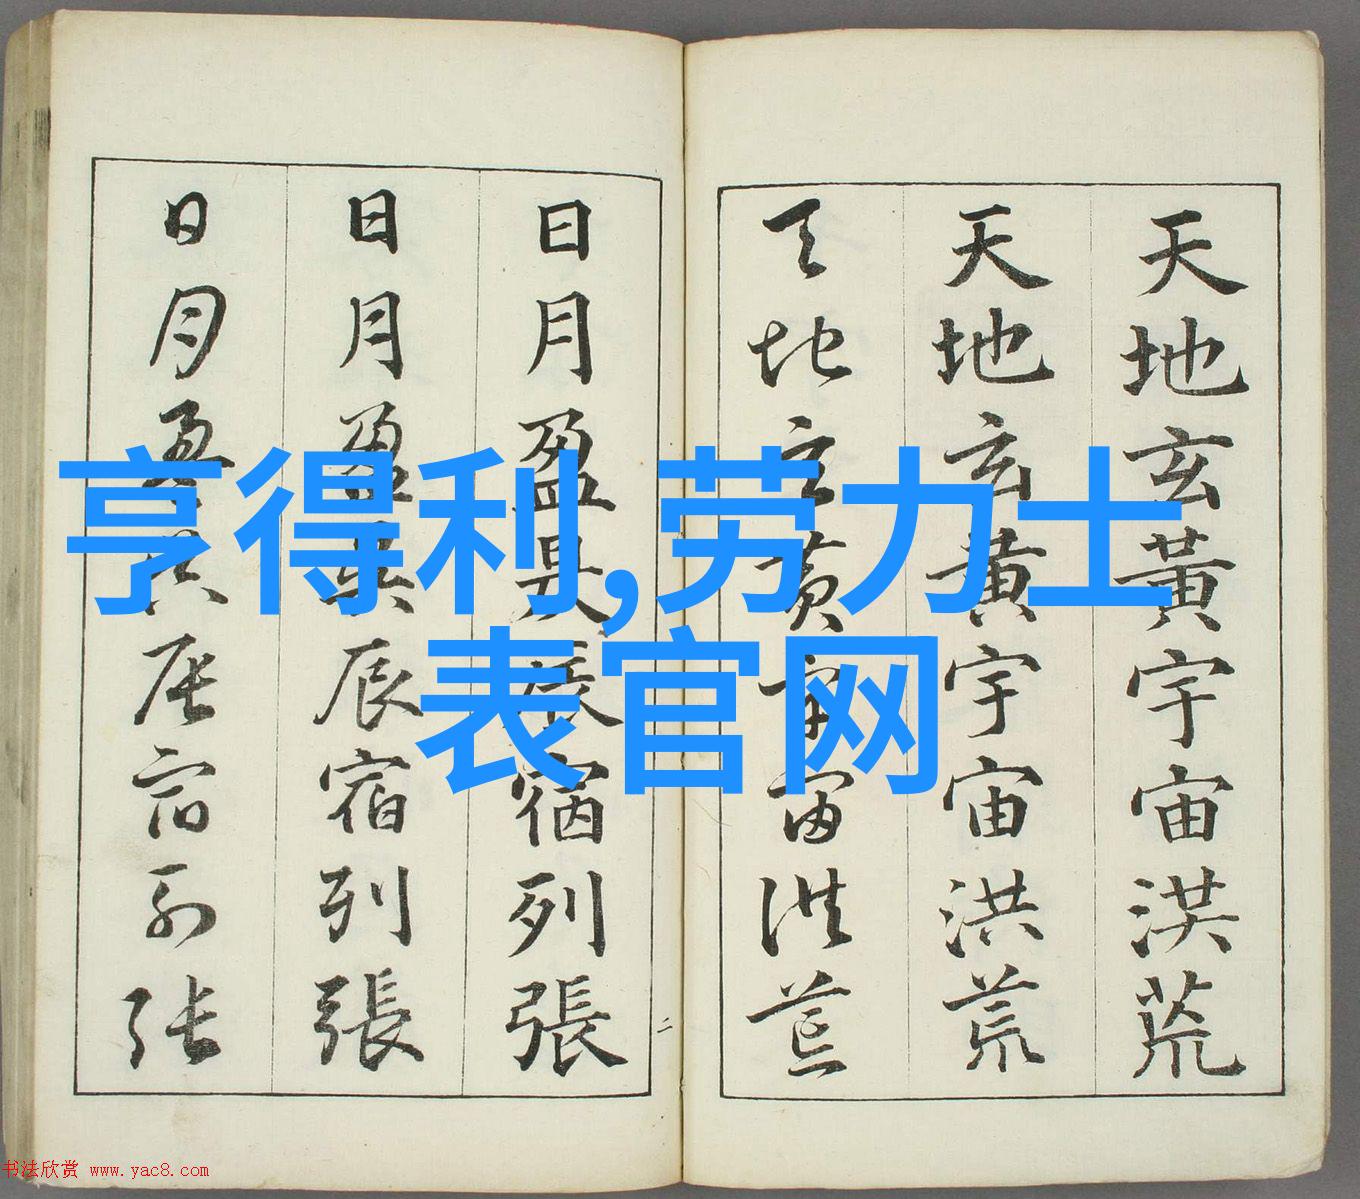 天地玄黃宇宙洪荒
天地玄黃宇宙洪荒
天地玄黃宇宙洪荒
日月盈昃辰宿列張
日月盈昃辰宿列張
日月盈昃辰宿列張
二
亨得利,劳力士
表官网
书法欣赏 www.yac8.com